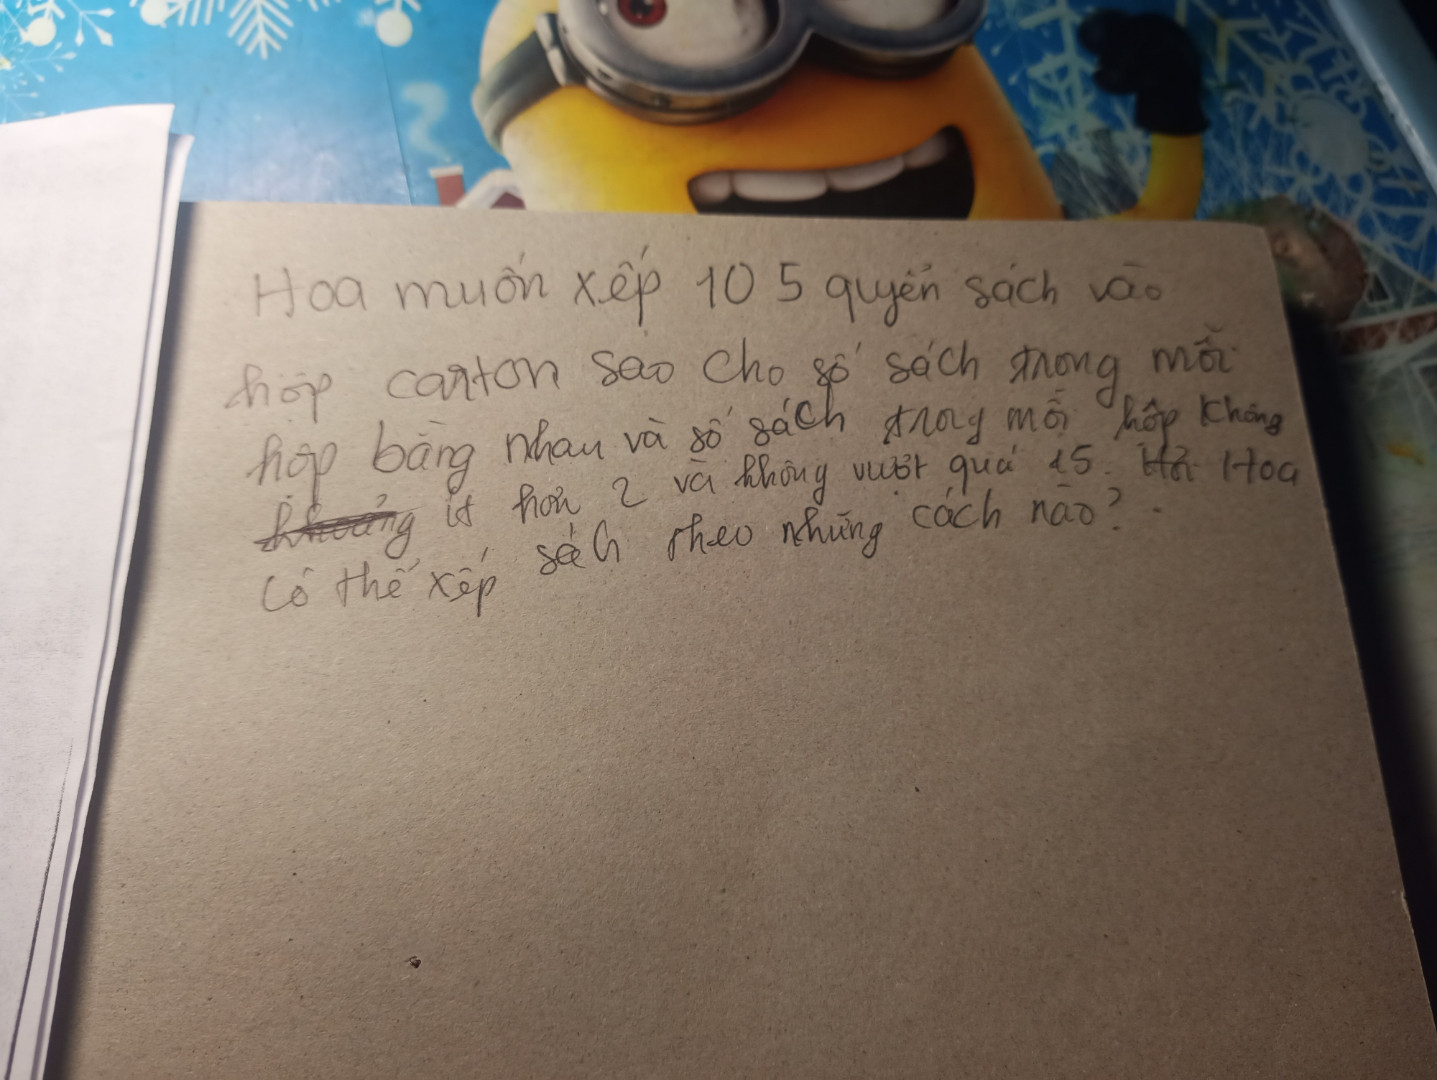 Hoa muốn xếp 105 quyển sách vào
hộp carton sao cho số sách trong mỗi
hộp bằng nhau và số sách trong mỗi hộp không
ít hơn 2 và không vượt quá 15. Hỏi Hoa
có thể xếp sách theo những cách nào?